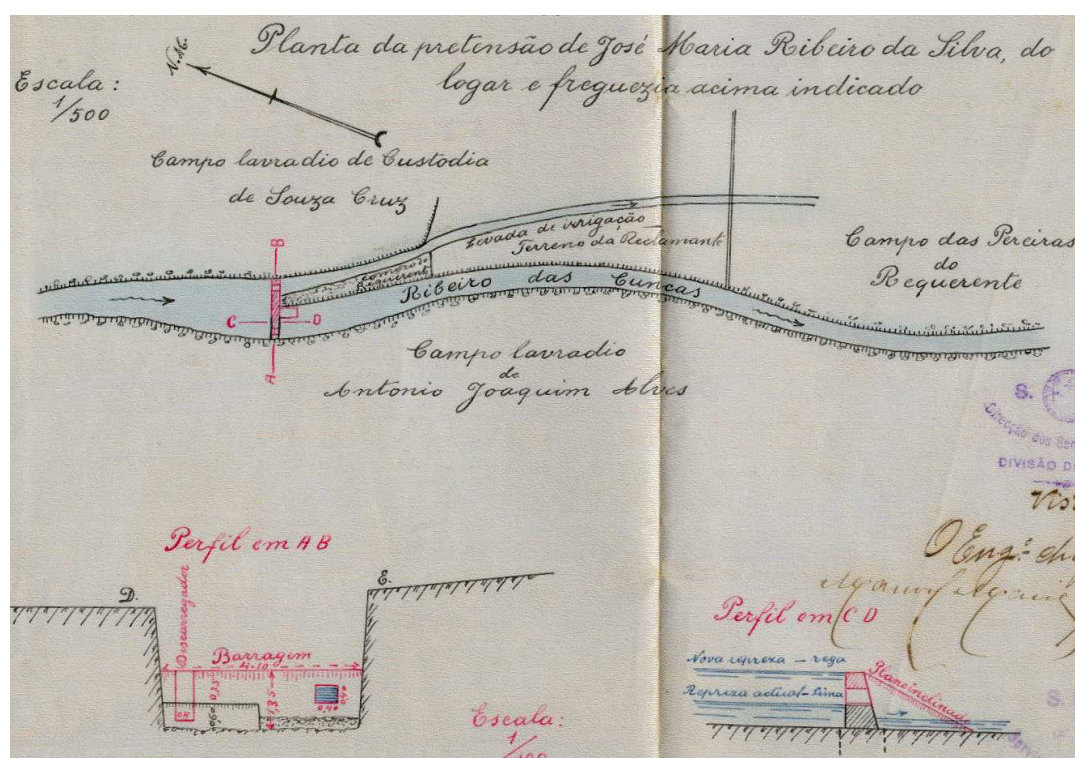 Planta da pretensão de José Maria Ribeiro da Silva, do
logar e freguezia acima indicado
N.M.
Escala:
1/500
Campo lavradio de Custodia
de Souza Cruz
B
Levada de irrigação
Terreno da Reclamante
Comoro do
Requerente
Ribeiro das Cuncas
Campo das Pereiras
do
Requerente
C
D
A
Campo lavradio
de
Antonio Joaquim Alves
S.
Direcção dos
DIVISÃO
O Engº
Perfil em A B
D.
E.
Descarregador
Barragem
4.10
0,75
0,60
1,35
0,4
0,40
0,40
Escala:
1/100
Perfil em C D
Nova repreza - rega
Repreza actual - Lima
Plano inclinado
S.